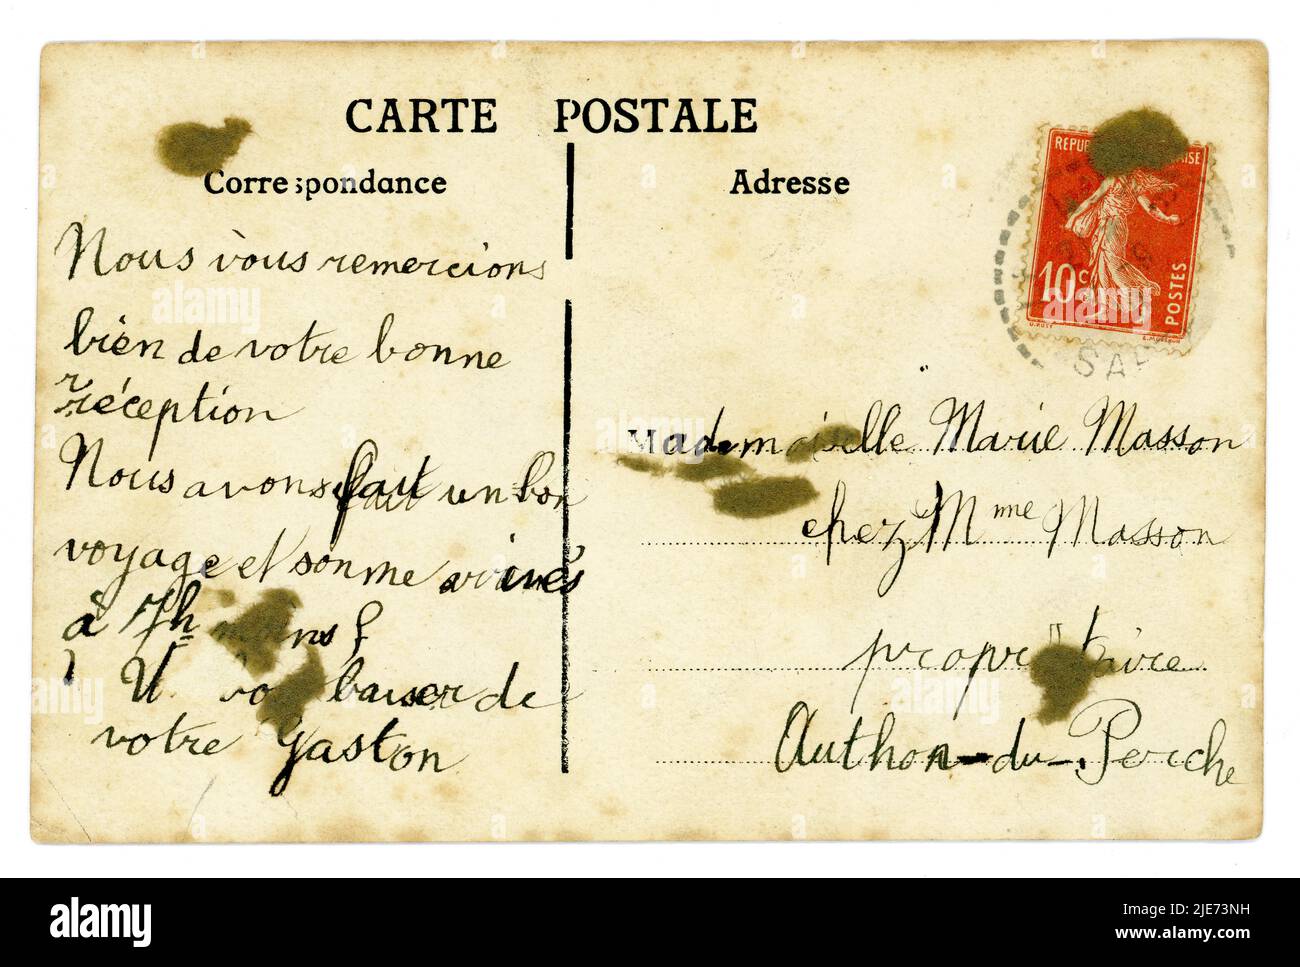 CARTE POSTALE
Correspondance
Nous vous remercions
bien de votre bonne
réception
Nous avons fait un bon
voyage et somme arrivés
à 7h moins
baiser de
votre Gaston
Adresse
10 c
POSTES
SAL
Mademoiselle Marie Masson
chez Mme Masson
propriétaire
Authon-du-Perche
alamy
Image ID: 2JE73NH
www.alamy.com